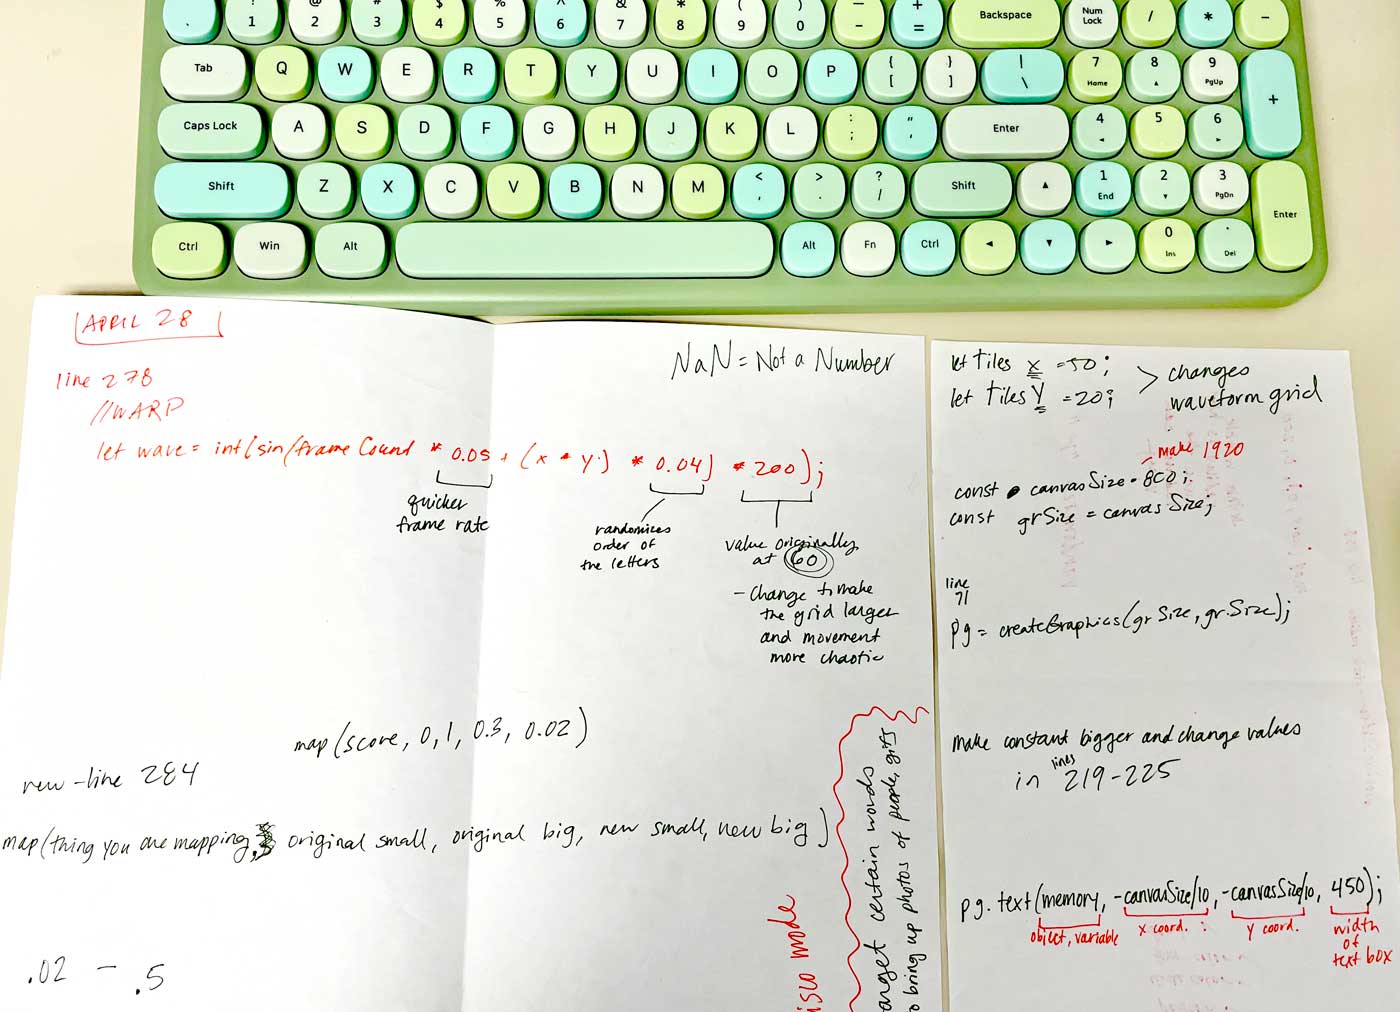 ~ ! @ # $ % ^ & * ( ) — +
` 1 2 3 4 5 6 7 8 9 0 - = Backspace Num Lock / * −
Tab Q W E R T Y U I O P { [ } ] | \ 7 Home 8 ▲ 9 PgUp +
Caps Lock A S D F G H J K L : ; " ' Enter 4 ◄ 5 6 ►
Shift Z X C V B N M < , > . ? / Shift ▲ 1 End 2 ▼ 3 PgDn Enter
Ctrl Win Alt Alt Fn Ctrl ◄ ▼ ► 0 Ins . Del
APRIL 28
line 278
//WARP
let wave = int(sin(frameCount * 0.05 + (x * y) * 0.04) * 200);
quicker
frame rate
randomizes
order of
the letters
value originally
at 60
- Change to make
the grid larger
and movement
more chaotic
NaN = Not a Number
map(score, 0, 1, 0.3, 0.02)
new - line 284
map(thing you are mapping, original small, original big, new small, new big)
.02 — .5
isco mode
arget certain words
o bring up photos of people, gifs
let tiles x = 50;
let tiles Y = 20;
> changes
waveform grid
make 1920
const canvasSize = 800;
const grSize = canvasSize;
line
71
pg = createGraphics(grSize, grSize);
make constant bigger and change values
in lines 219-225
pg.text(memory, -canvasSize/10, -canvasSize/10, 450);
object, variable
x coord. :
y coord.
width
of
text box